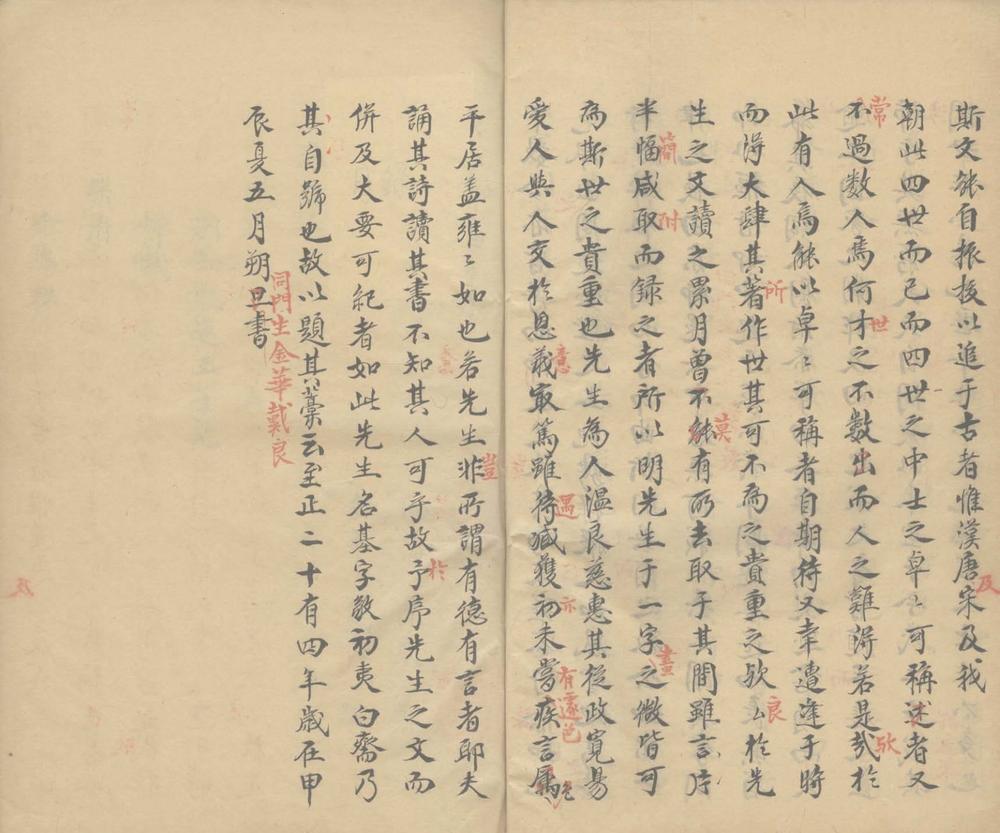 斯文能自振拔以追于古者惟漢唐宋及我
朝此四世而已而四世之中士之卓〻可稱述者又
不過數人焉何才之不數出而人之難得若是哉於
此有人焉能以卓〻可稱者自期待又幸遭逢于時
而得大肆其著作世其可不為之貴重之歟厶於先
生之文讀之累月曾不能有所去取于其間雖言片
半幅咸取而錄之者所以明先生于一字之微皆可
為斯世之貴重也先生為人溫良慈惠其從政寬易
愛人與人交於恩義最篤雖待臧獲初未嘗疾言厲
平居盖雍〻如也若先生非所謂有德有言者耶夫
誦其詩讀其書不知其人可乎故予序先生之文而
併及大要可紀者如此先生名基字敬初夷白齋乃
其自號也故以題其藁云至正二十有四年歲在甲
辰夏五月朔旦書
同門生金華戴良
及
常
歟
世
所
良
莫
簡
附
畫
意
遇
亦
有遽色
色
豈
於
及